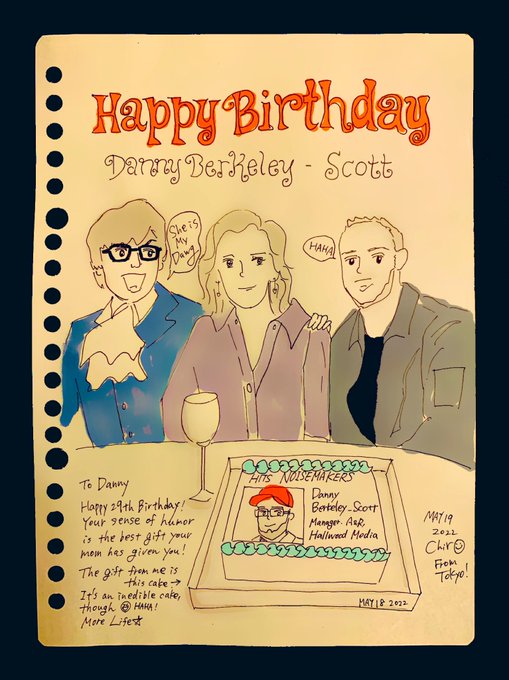 Happy Birthday
Danny Berkeley - Scott
She is
My
Dawg
HAHA!
HITS NOISEMAKERS
Danny
Berkeley-Scott
Manager A&R,
Hallwood Media
MAY 18 2022
To Danny
Happy 29th Birthday!
Your sense of humor
is the best gift your
mom has given you!
The gift from me is
this cake →
It's an inedible cake,
though HAHA!
More Life☆
MAY 19
2022
From
Tokyo!